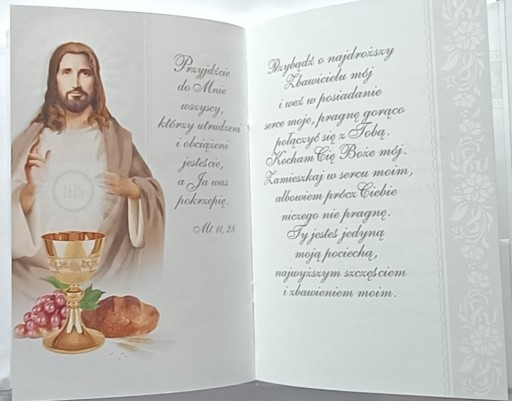 IHS
Przyjdźcie
do Mnie
wszyscy,
którzy utrudzeni
i obciążeni
jesteście,
a Ja was
pokrzepię.
Mt 11, 28
Przybądź o najdroższy
Zbawicielu mój
i weź w posiadanie
serce moje, pragnę gorąco
połączyć się z Tobą.
Kocham Cię Boże mój.
Zamieszkaj w sercu moim,
albowiem prócz Ciebie
niczego nie pragnę.
Ty jesteś jedyną
moją pociechą,
najwyższym szczęściem
i zbawieniem moim.